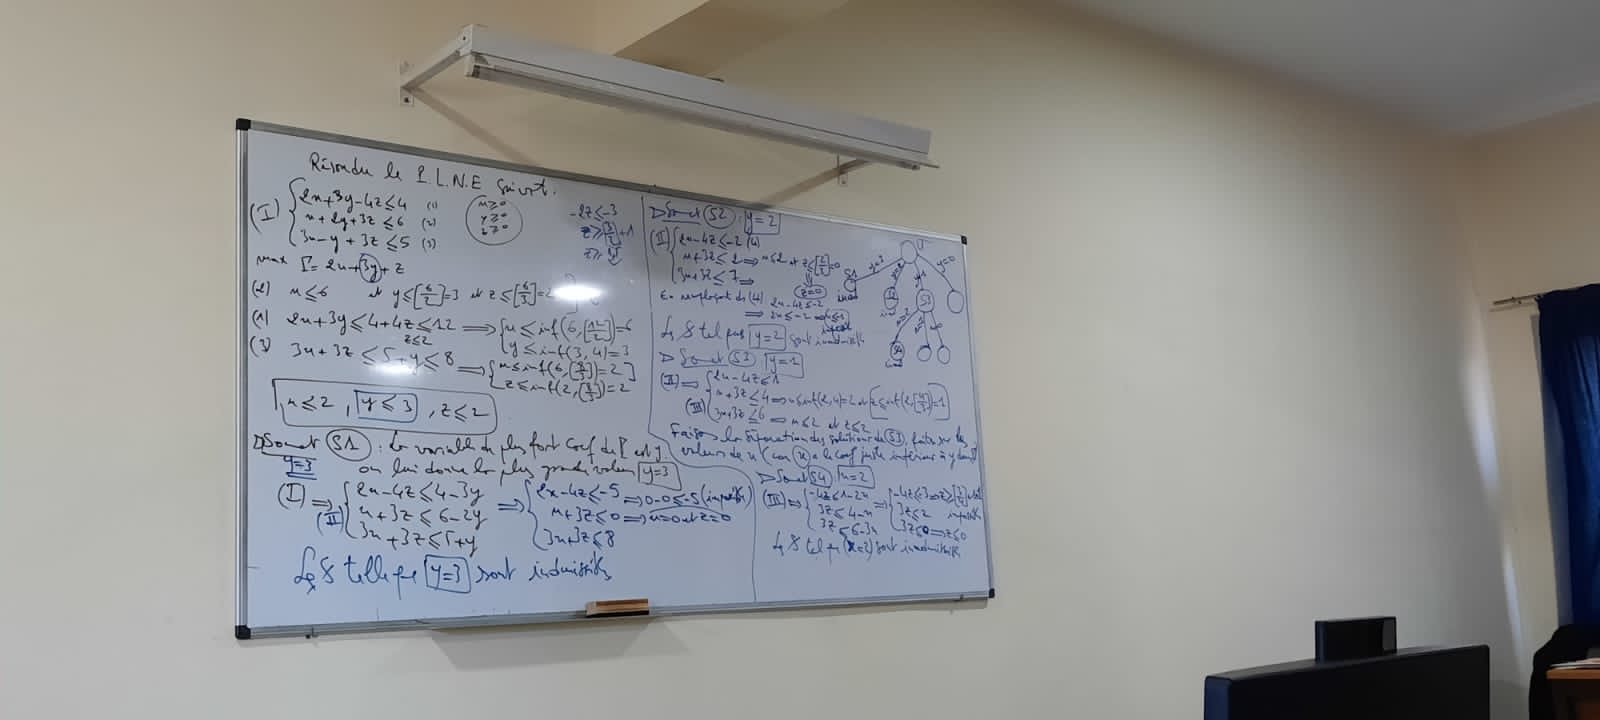 Résoudre le P.L.N.E suivant.
(I) { 2x+3y-4z≤4 (1)
x+2y+3z≤6 (2)
3x-y+3z≤5 (3)
x≥0
y≥0
z≥0
max Γ=2x+3y+z
(2) x≤6 et y≤[6/2]=3 et z≤[6/3]=2
(1) 2x+3y≤4+4z≤12 ⟹ { x≤inf(6,[12/2])=6
z≤2
y≤inf(3,4)=3
(3) 3x+3z≤5+y≤8 ⟹ { x≤inf(6,[8/3])=2
z≤inf(2,[8/3])=2
x≤2, y≤3, z≤2
Sommet S1 : La variable de plus fort coef de Γ est y
y=3 on lui donne la plus grande valeur y=3
(I) ⟹ { 2x-4z≤4-3y ⟹ { 2x-4z≤-5 ⟹ 0-0≤-5 (impossible)
(II) x+3z≤6-2y x+3z≤0 ⟹ x=0 et z=0
3x+3z≤5+y 3x+3z≤8
Les S telle que y=3 sont inadmissibles
-2z≤-3
Sommet S2 : y=2
(II) { 2x-4z≤-2 (4)
x+3z≤2 ⟹ x≤2 et z≤[2/3]=0
3x+3z≤7 ⟹
z=0
En remplaçant ds (4) 2x-4z≤-2
⟹ 2x≤-2
Les S tel que y=2 sont inadmissibles
Sommet S3 y=1
(II) ⟹ { 2x-4z≤1
x+3z≤4 ⟹ x≤inf(2,4)=2 et z≤inf(2,[4/3])=1
(III) 3x+3z≤6 ⟹ x≤2 et z≤2
Faisons la séparation des solutions de S3, faite sur les
valeurs de x (car x a le coef juste inférieur à y dans Γ)
Sommet S4 x=2
(III) ⟹ { -4z≤1-2x ⟹ { -4z≤-3
3z≤4-x 3z≤2
3z≤6-3x 3z≤0 ⟹ z≤0
Les S tel que (x=2) sont inadmissibles
Γ
y=3
y=1
y=0
S1
S3
S4